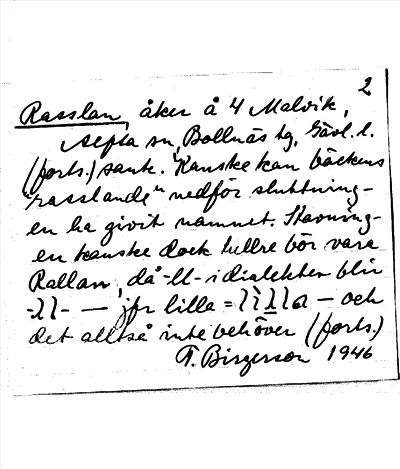 2
Rasslan, åker å 4 Malvik,
Alfta sn, Bollnäs tg, Gävl. l.
(forts.) sank. Kanske kan bäckens
"rasslande" nedför sluttning-
en ha givit namnet. Stavning-
en kanske dock hellre bör vara
Rallan, då -ll- i dialekten blir
— jfr lilla = — och
det alltså inte behöver (forts.)
F. Birgerson 1946